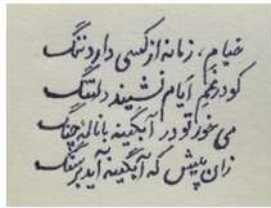 خیام، زمانه از کسی دارد ننگ
کو در غم ایام نشیند دلتنگ
می خور تو در آبگینه با ناله چنگ
زان پیش که آبگینه آید بر سنگ